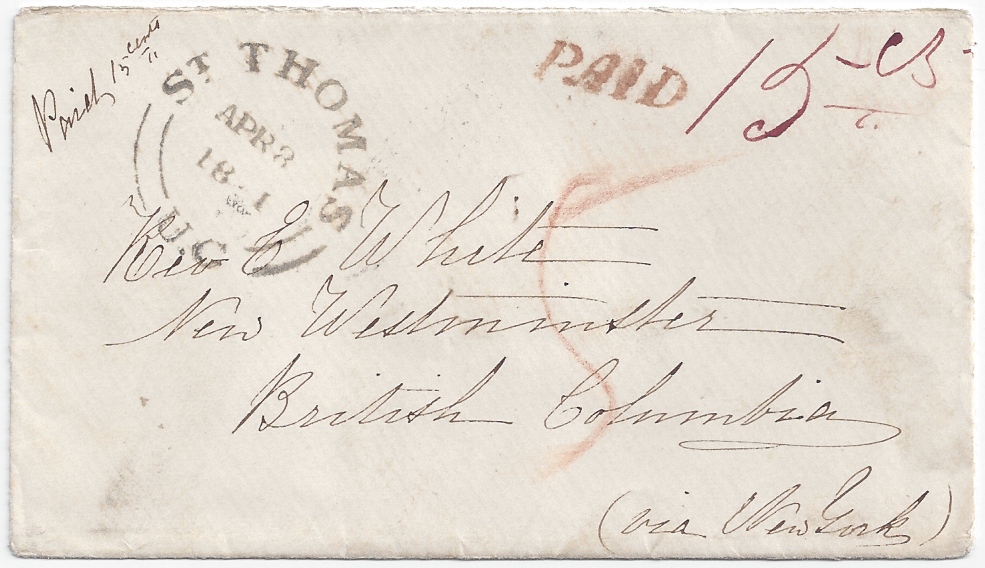 Paid 15 cents
ST THOMAS
APR 8
18 1
U.C
PAID
15 - cts
5
Rev E White
New Westminster
British Columbia
(via New York)